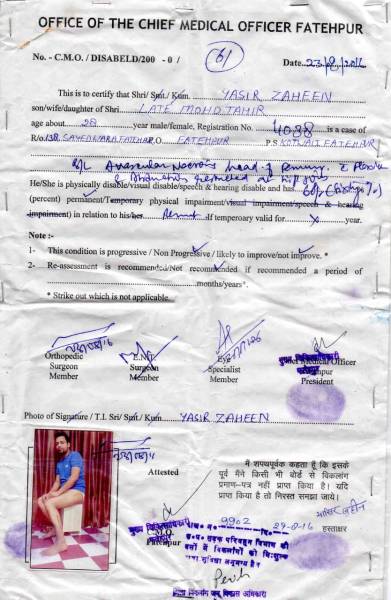 OFFICE OF THE CHIEF MEDICAL OFFICER FATEHPUR
No. - C.M.O. / DISABELD/200 - 0 /
61
Date. 23/8/2016
This is to certify that Shri/ Smt./ Kum. YASIR ZAHEEN
son/wife/daughter of Shri LATE MOHD TAHIR
age about 28 year male/female, Registration No. 4088 is a case of
R/o 138 SAYEDWARA FATEHPUR O FATEHPUR P.S KOTWALI FATEHPUR
B/L Avascular Necrosis head of Femur,
& Abduction restricted at hip
He/She is physically disable/visual disable/speech & hearing disable and has 60% (Sixty %)
(percent) permanent/Temporary physical impairment/visual impairment/speech & hearing
impairment) in relation to his/her If temporary valid for year.
Note :-
1- This condition is progressive / Non Progressive / likely to improve/not improve. *
2- Re-assessment is recommended/Not recommended if recommended a period of
months/years*.
* Strike out which is not applicable.
Orthopedic
Surgeon
Member
E.N.T.
Surgeon
Member
Eye
Specialist
Member
मुख्य चिकित्साधिकारी
फतेहपुर
Chief Medical Officer
Fatehpur
President
Photo of Signature / T.I. Sri/ Smt./ Kum. YASIR ZAHEEN
Attested
C.M.O.
Fatehpur
मुख्य चिकित्साधिकारी
मैं शपथपूर्वक कहता हूँ कि इसके
पूर्व मैंने किसी भी बोर्ड से विकलांग
प्रमाण-पत्र नहीं प्राप्त किया है। यदि
प्राप्त किया है तो निरस्त समझा जाये।
यासिर ज़हीन
हस्ताक्षर
9902
27-8-16
उ०प्र० सड़क परिवहन निगम की
बसों में विकलांगों को निःशुल्क
यात्रा सुविधा अनुमन्य है।
जिला विकलांग जन विकास अधिकारी